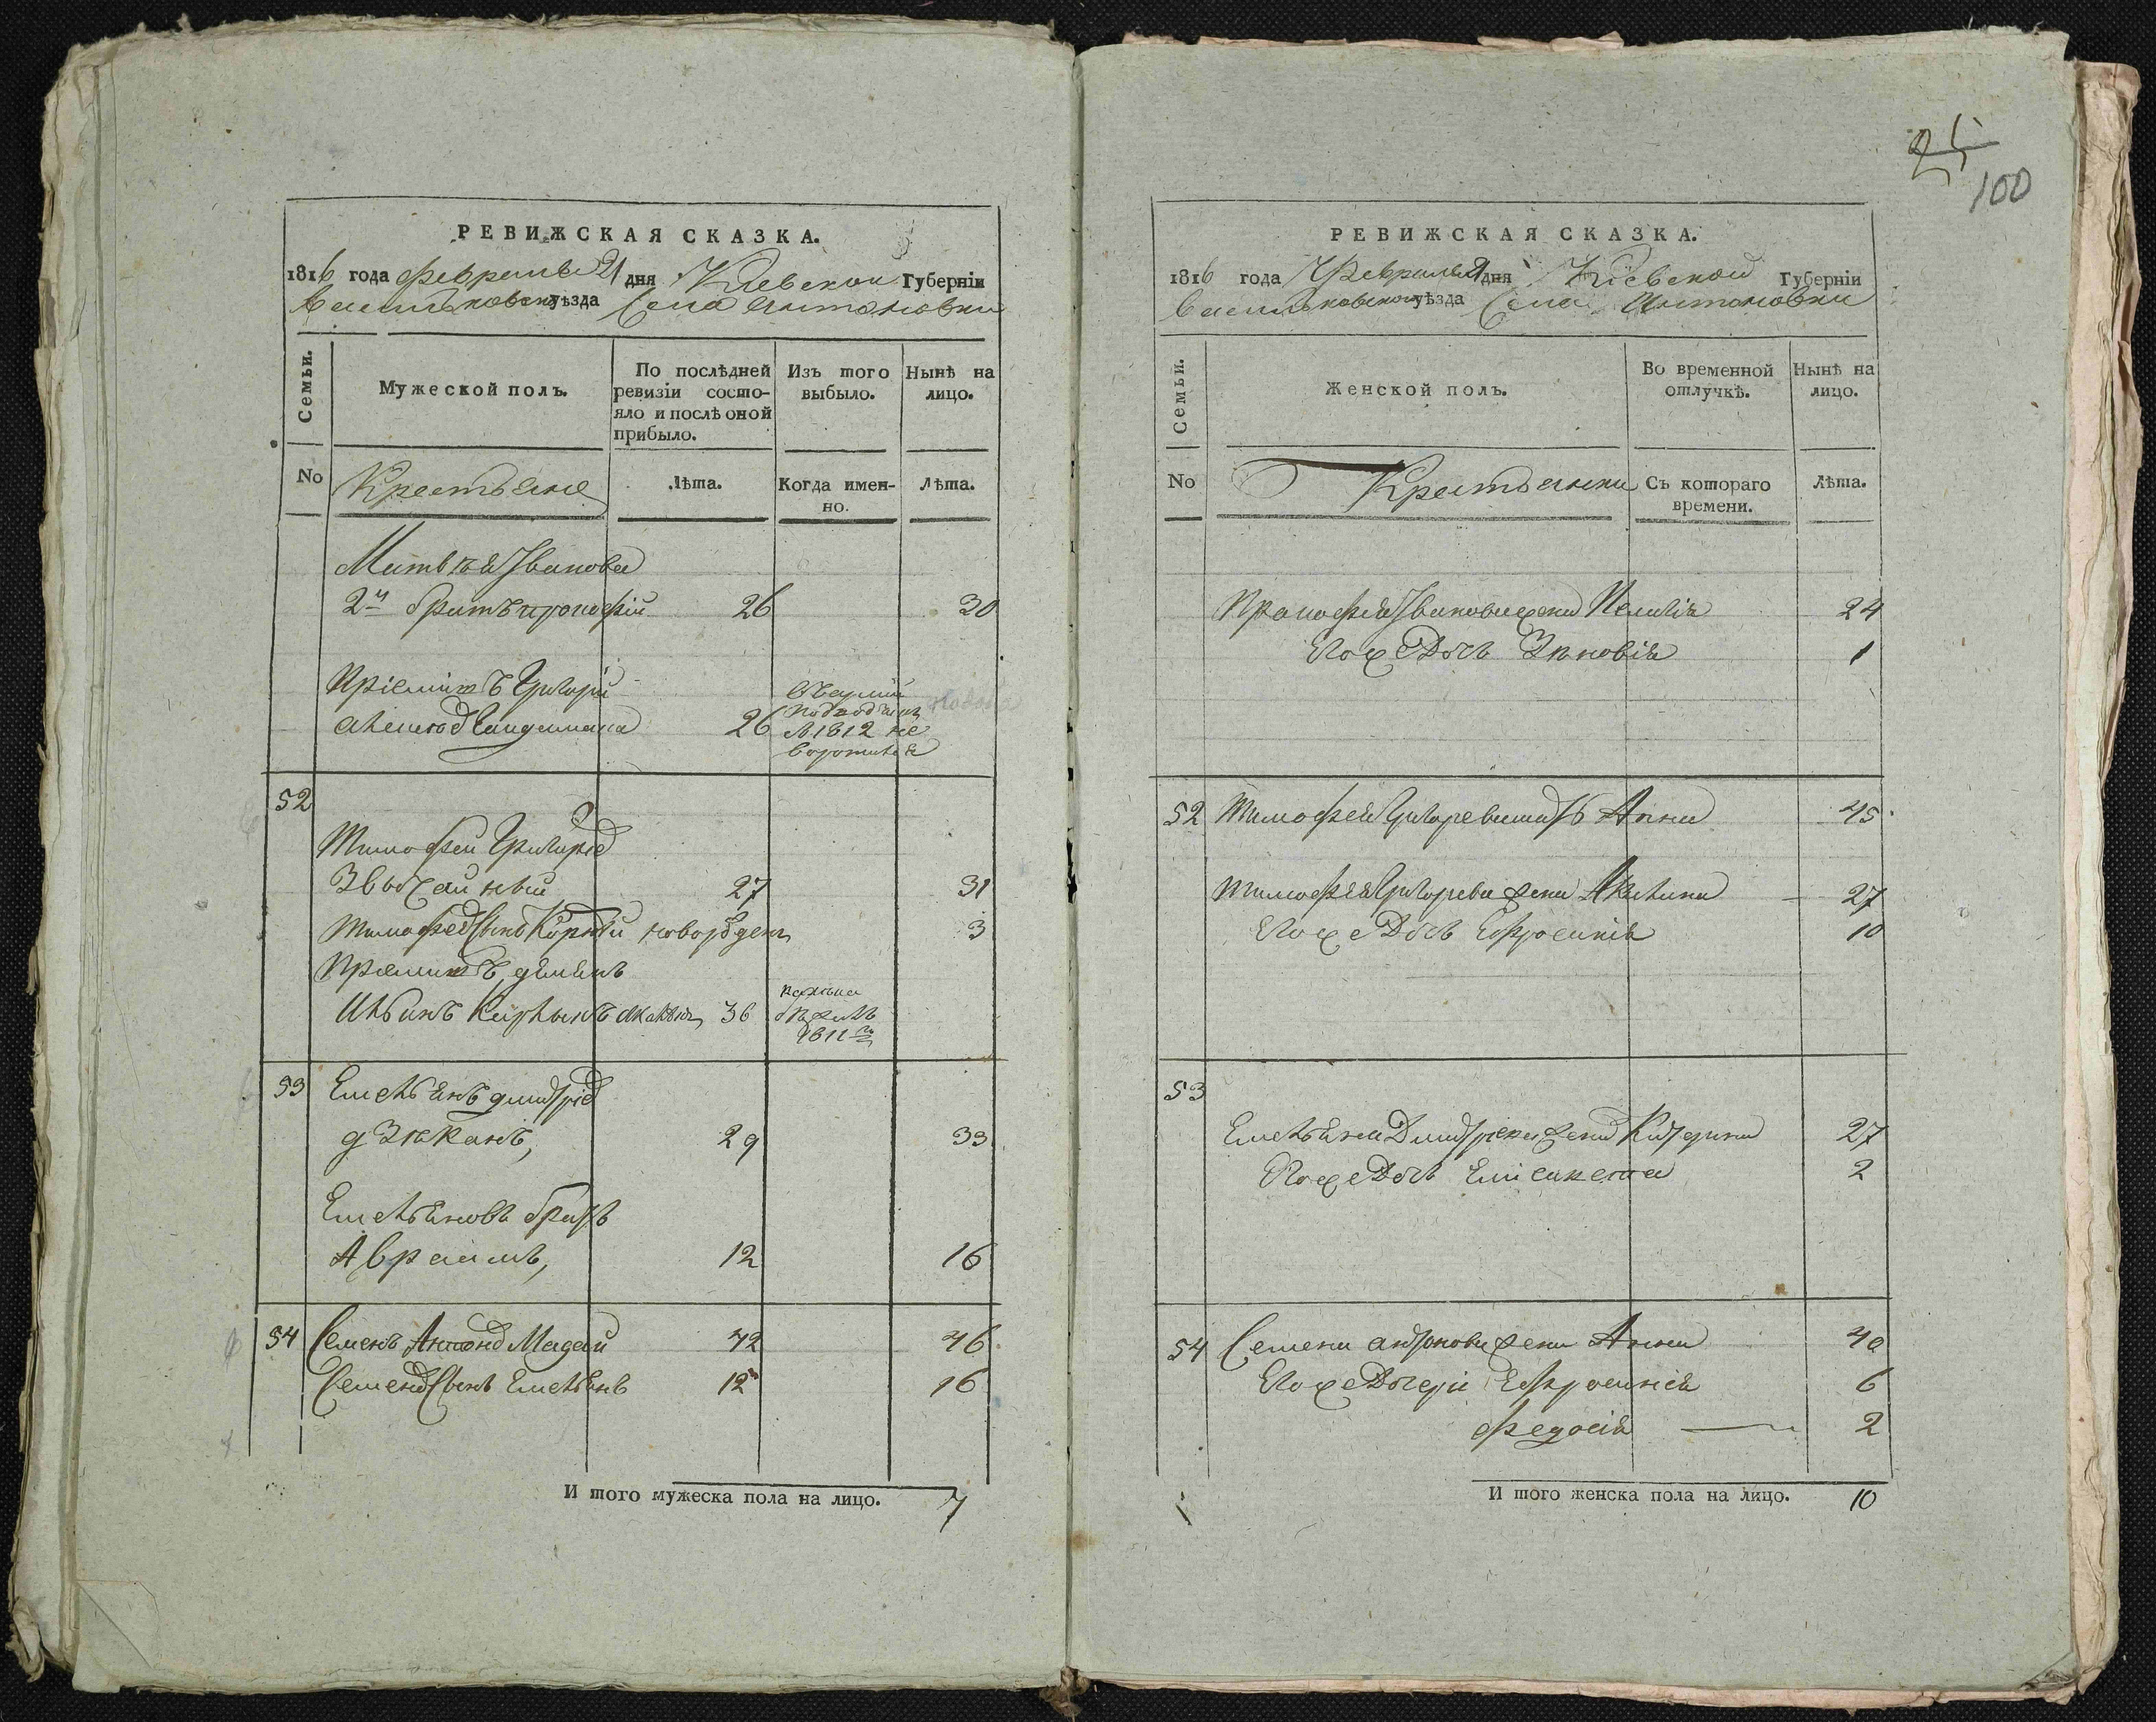 РЕВИЖСКАЯ СКАЗКА.
1816 года Февраля 21 дня Киевской Губерніи
Васильковскаго уѣзда Села Антоновки
Семьи.
Мужеской полъ.
По послѣдней ревизіи состо-
яло и послѣ оной
прибыло.
Изъ того
выбыло.
Нынѣ на
лицо.
No
Крестьяне
Лѣта.
Когда имен-
но.
Лѣта.
Матвѣя Иванова
2й братъ Прокофій 26 30
Пріемишъ Григорій
26 1812 не
52
Тимофей Григоріев
Звычайный 27 31
Тимофея Сынъ Корнѣй новорожден 3
Пріемишъ Демянъ
36
бѣжалъ
1811го
53 Емельянъ Дмитріев
Дзюканъ, 29 33
Емельяновъ братъ
Авраамъ, 12 16
54 Семенъ Антонов Мадай 42 46
Семенов Сынъ Емельянъ 12 16
И того мужеска пола на лицо. 7
25
100
РЕВИЖСКАЯ СКАЗКА.
1816 года Февраля 21 дня Киевской Губерніи
Васильковского уѣзда Села Антоновки
Семьи.
Женской полъ.
Во временной
отлучкѣ.
Нынѣ на
лицо.
No
Крестьянки
Съ котораго
времени.
Лѣта.
Прокофія Иванова жена Пелагія 24
Его же Дочь Зѣновія 1
52 Тимофея Григорева мать Анна 45
Тимофея Григорева жена Акилина 27
Его же Дочь Ефросинія 10
53
Емельяна Дмитріева жена Катерина 27
Его же Дочь 2
54 Семена Антонова жена Анна 40
Его же Дочери Ефросинія 6
Федосія 2
И того женска пола на лицо. 10